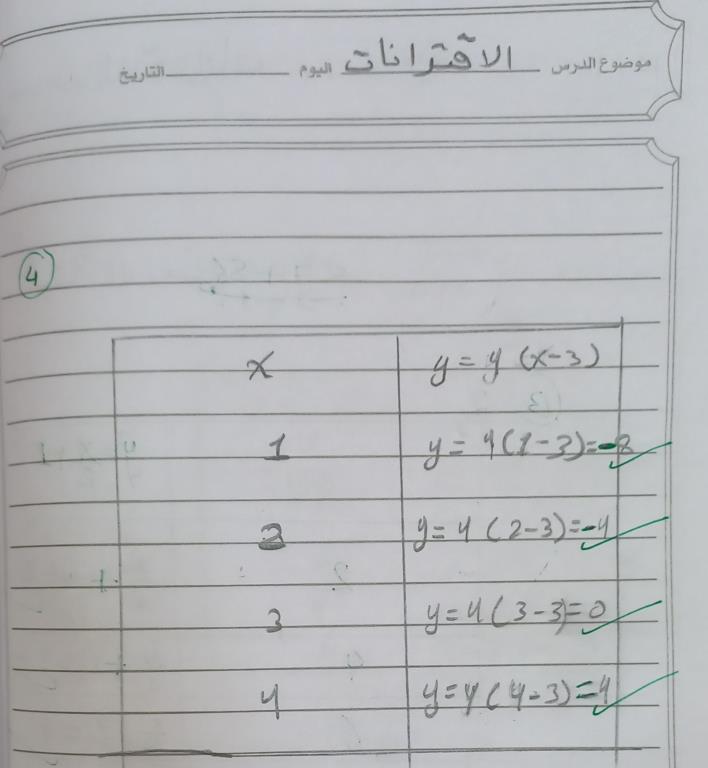 موضوع الدرس الاقترانات اليوم التاريخ
4
x y = 4 (x-3)
1 y = 4(1-3)=-8
2 y= 4 (2-3)=-4
3 y=4(3-3)=0
4 y=4(4-3)=4